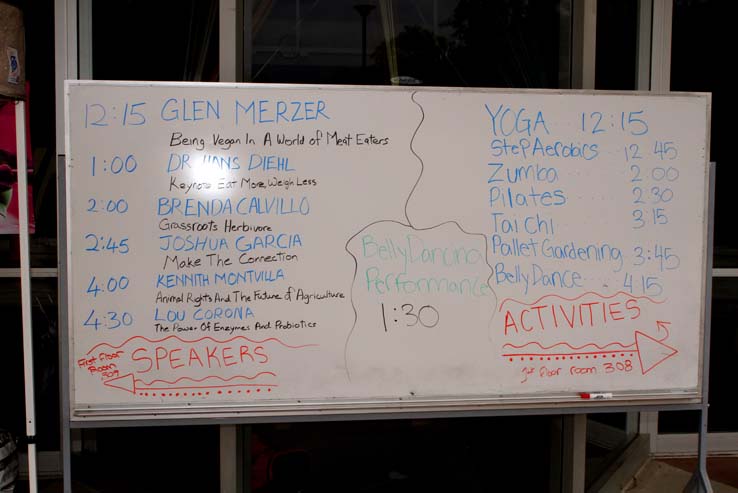 12:15 GLEN MERZER
Being Vegan In A World of Meat Eaters
1:00 DR HANS DIEHL
Keynote Eat More, Weigh Less
2:00 BRENDA CALVILLO
Grassroots Herbivore
2:45 JOSHUA GARCIA
Make The Connection
4:00 KENNITH MONTVILLA
Animal Rights And The Future of Agriculture
4:30 LOU CORONA
The Power Of Enzymes And Probiotics
First Floor
Room
309
SPEAKERS
Belly Dancing
Performance
1:30
YOGA 12:15
Step Aerobics 12 45
Zumba 2:00
Pilates 2:30
Tai Chi 3:15
Pallet Gardening 3:45
Belly Dance 4:15
ACTIVITIES
floor room 308